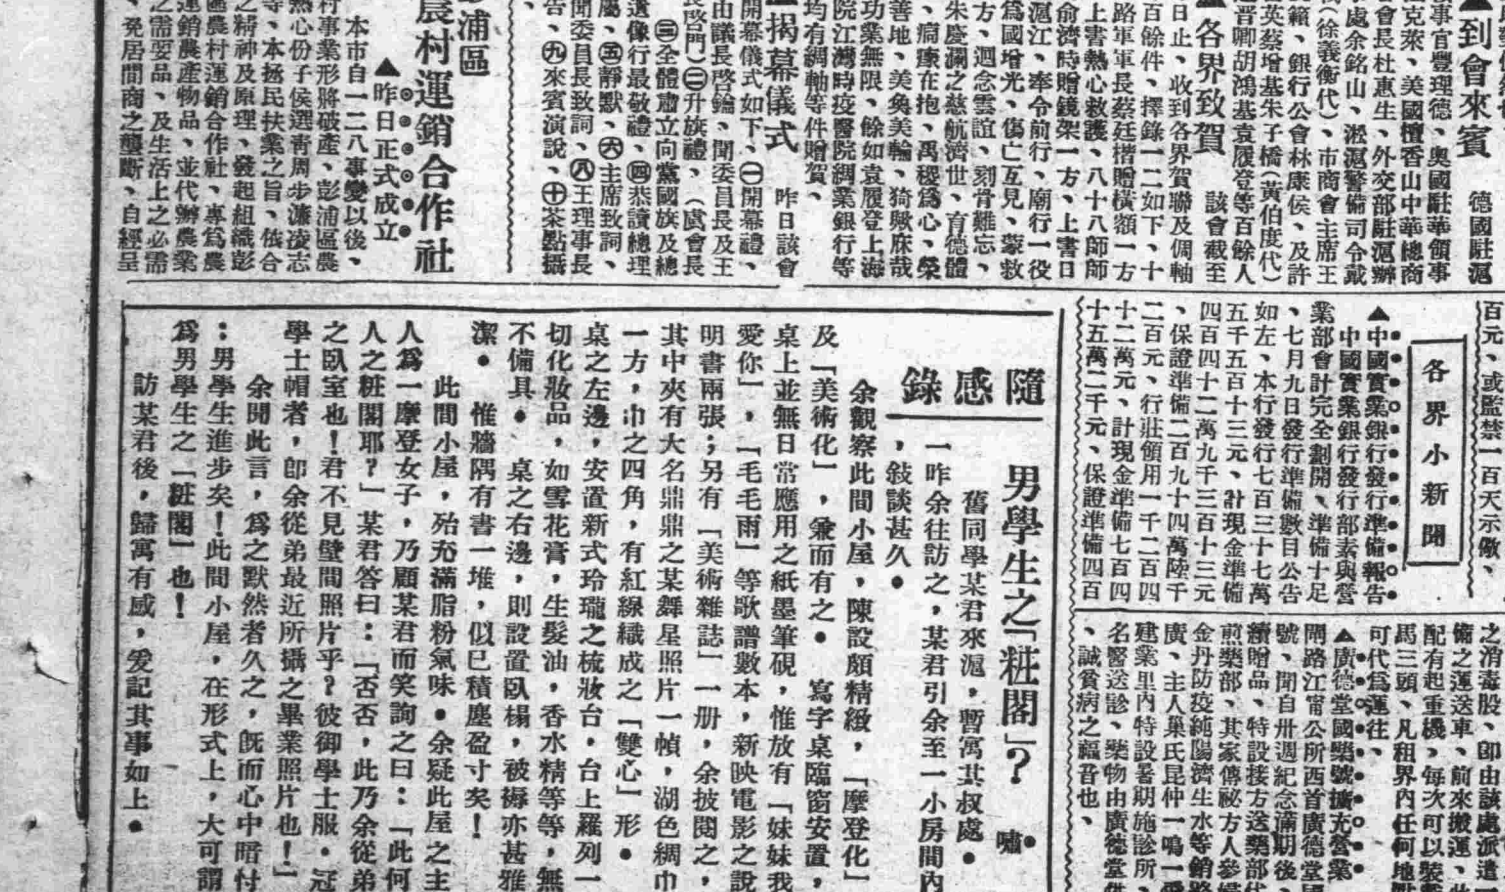 ▲到會來賓　德國駐滬
領事官豐理德、奧國駐華領事
克萊、美國檀香山中華總商
會會長杜惠生、外交部駐滬辦
事處余銘山、淞滬警備司令戴
(徐義衡代)、市商會主席王
籟、銀行公會林康侯、及許
世英蔡增基朱子橋(黃伯度代)
音卿胡鴻基袁履登等百餘人
▲各界致賀　該會截至
昨日止、收到各界賀聯及倜軸
百餘件、擇錄一二如下、十
路軍軍長蔡廷楷贈橫額一方
上書熱心救護、八十八師師
俞濟時贈鏡架一方、上書日
滬江、奉令前行、廟行一役
爲國增光、傷亡互見、蒙救
方、迴念雲誼、刻骨難忘、
朱慶瀾之慈航濟世、育德體
、痌瘝在抱、禹稷爲心、榮
善地、美奐美輪、猗歟庥哉
功業無限、餘如袁履登上海
院江灣時疫醫院綢業銀行等
均有綢軸等件贈賀、
▲揭幕儀式　昨日該會
開幕儀式如下、㊀開幕禮、
由議長啓鑰、聞委員長及王
長啓門)㊁升旗禮、(虞會長
㊂全體肅立向黨國旗及總
遺像行最敬禮、㊃恭讀總理
囑、㊄靜默、㊅主席致詞、
聞委員長致詞、㊇王理事長
告、㊈來賓演說、㊉茶點攝
、
浦區
農村運銷合作社
▲昨日正式成立
本市自一二八事變以後、
村事業形將破產、彭浦區農
熱心份子侯選靑周步濂凌志
等、本拯民扶業之旨、依合
之精神及原理、發起組織彭
區農村運銷合作社、專爲農
運銷農產物品、並代辦農業
之需要品、及生活上之必需
、免居間商之壟斷、自經呈
百元、或監禁一百天示儆、
各界小新聞
▲中國實業銀行發行準備報吿
中國實業銀行發行部素與營
業部會計完全劃開、準備十足
、七月九日發行準備數目公吿
如左、本行發行七百三十七萬
五千五百十三元、計現金準備
四百四十二萬九千三百十三元
、保證準備二百九十四萬陸千
二百元、行莊領用一千二百四
十二萬元、計現金準備七百四
十五萬二千元、保證準備四百
之消毒股、卽由該處派遣
備之運送車、前來搬運、
配有起重機、每次可以裝
馬三頭、凡租界內任何地
可代爲運往、
▲廣德堂國藥號擴充營業
閘路江甯公所西首廣德堂國
號、開自卅週紀念滿期後、
續贈品、特設接方送藥部代
前藥部、其家傳祕方人參
金丹防疫純陽濟生水等銷路
廣、主人巢氏昆仲一鳴一
建業里內特設暑期施診所、
名醫送診、藥物由廣德堂供
、誠貧病之福音也、
隨感錄
男學生之「粧閣」？　嘯
舊同學某君來滬，暫寓其叔處。
一昨余往訪之，某君引余至一小房間內
，敍談甚久。
余觀察此間小屋，陳設頗精緻，「摩登化」
及「美術化」，兼而有之。寫字桌臨窗安置，
桌上並無日常應用之紙墨筆硯，惟放有「妹妹我
愛你」，「毛毛雨」等歌譜數本，新映電影之說
明書兩張；另有「美術雜誌」一册，余披閱之，
其中夾有大名鼎鼎之某舞星照片一幀，湖色綢巾
一方，巾之四角，有紅線織成之「雙心」形。
桌之左邊，安置新式玲瓏之梳妝台，台上羅列一
切化妝品，如雪花膏，生髮油，香水精等等，無
不備具。桌之右邊，則設置臥榻，被褥亦甚雅
潔。惟牆隅有書一堆，似已積塵盈寸矣！
此間小屋，殆充滿脂粉氣味。余疑此屋之主
人爲一摩登女子，乃顧某君而笑詢之曰：「此何
人之粧閣耶？」某君答曰：「否否，此乃余從弟
之臥室也！君不見壁間照片乎？彼御學士服。冠
學士帽者，卽余從弟最近所攝之畢業照片也！」
余聞此言，爲之默然者久之，旣而心中暗忖
：男學生進步矣！此間小屋，在形式上，大可謂
爲男學生之「粧閣」也！
訪某君後，歸寓有感，爰記其事如上。